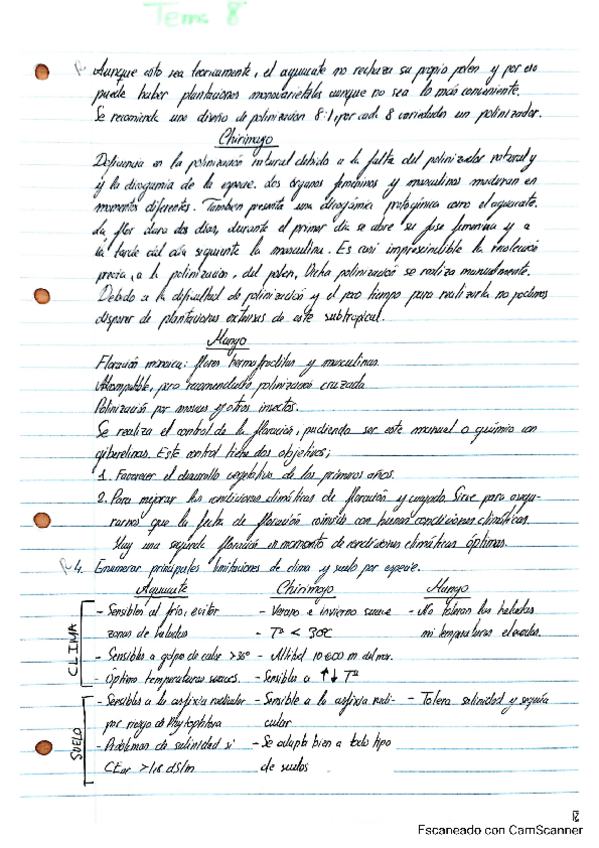 Tema 8
Aunque esto sea teoricamente, el aguacate no rechaza su propio polen y por eso
puede haber plantaciones monovarietales aunque no sea lo más conveniente.
Se recomienda una diseño de polinización 8:1, por cada 8 variedades un polinizador.
Chirimoyo
Deficiencia en la polinización natural debido a la falta del polinizador natural y
y la dicogamia de la especie. Los órganos femeninos y masculinos maduran en
momentos diferentes. Tambien presenta una dicogámia protogínica como el aguacate.
La flor dura dos días, durante el primer día se abre su fase femenina y a
la tarde del día siguiente la masculina. Es casi imprescindible la recolección
previa, a la polinización, del polen. Dicha polinización se realiza manualmente.
Debido a la dificultad de polinización y el poco tiempo para realizarla no podemos
disponer de plantaciones extensas de este subtropical.
Mango
Floración monoica: flores hermafroditas y masculinas.
Autocompatible, pero recomendable polinización cruzada
Polinización por moscas y otros insectos.
Se realiza el control de la floración, pudiendo ser este manual o químico con
giberelinas. Este control tiene dos objetivos;
1. Favorecer el desarrollo vegetativo de los primeros años.
2. Para mejorar las condiciones climáticas de floración y cuajado. Sirve para asegu-
rarnos que la fecha de floración coincida con buenas condiciones climáticas.
Hay una segunda floración en momento de condiciones climáticas óptimas.
4. Enumerar principales limitaciones de clima y suelo por especie.
Aguacate Chirimoyo Mango
CLIMA
- Sensibles al frío, evitar - Verano e invierno suave - No toleran las heladas
zonas de heladas - Tª < 30ºC ni temperaturas elevadas.
- Sensibles a golpe de calor >36º - Altitud m del mar.
- Óptimo temperaturas suaves. - Sensibles a ↑↓ Tª
SUELO
- Sensibles a la asfixia radicular - Sensible a la asfixia radi- - Tolera salinidad y sequía
por riesgo de Phytophtora cular
- Problemas de salinidad si - Se adapta bien a todo tipo
dS/m de suelos
Escaneado con CamScanner